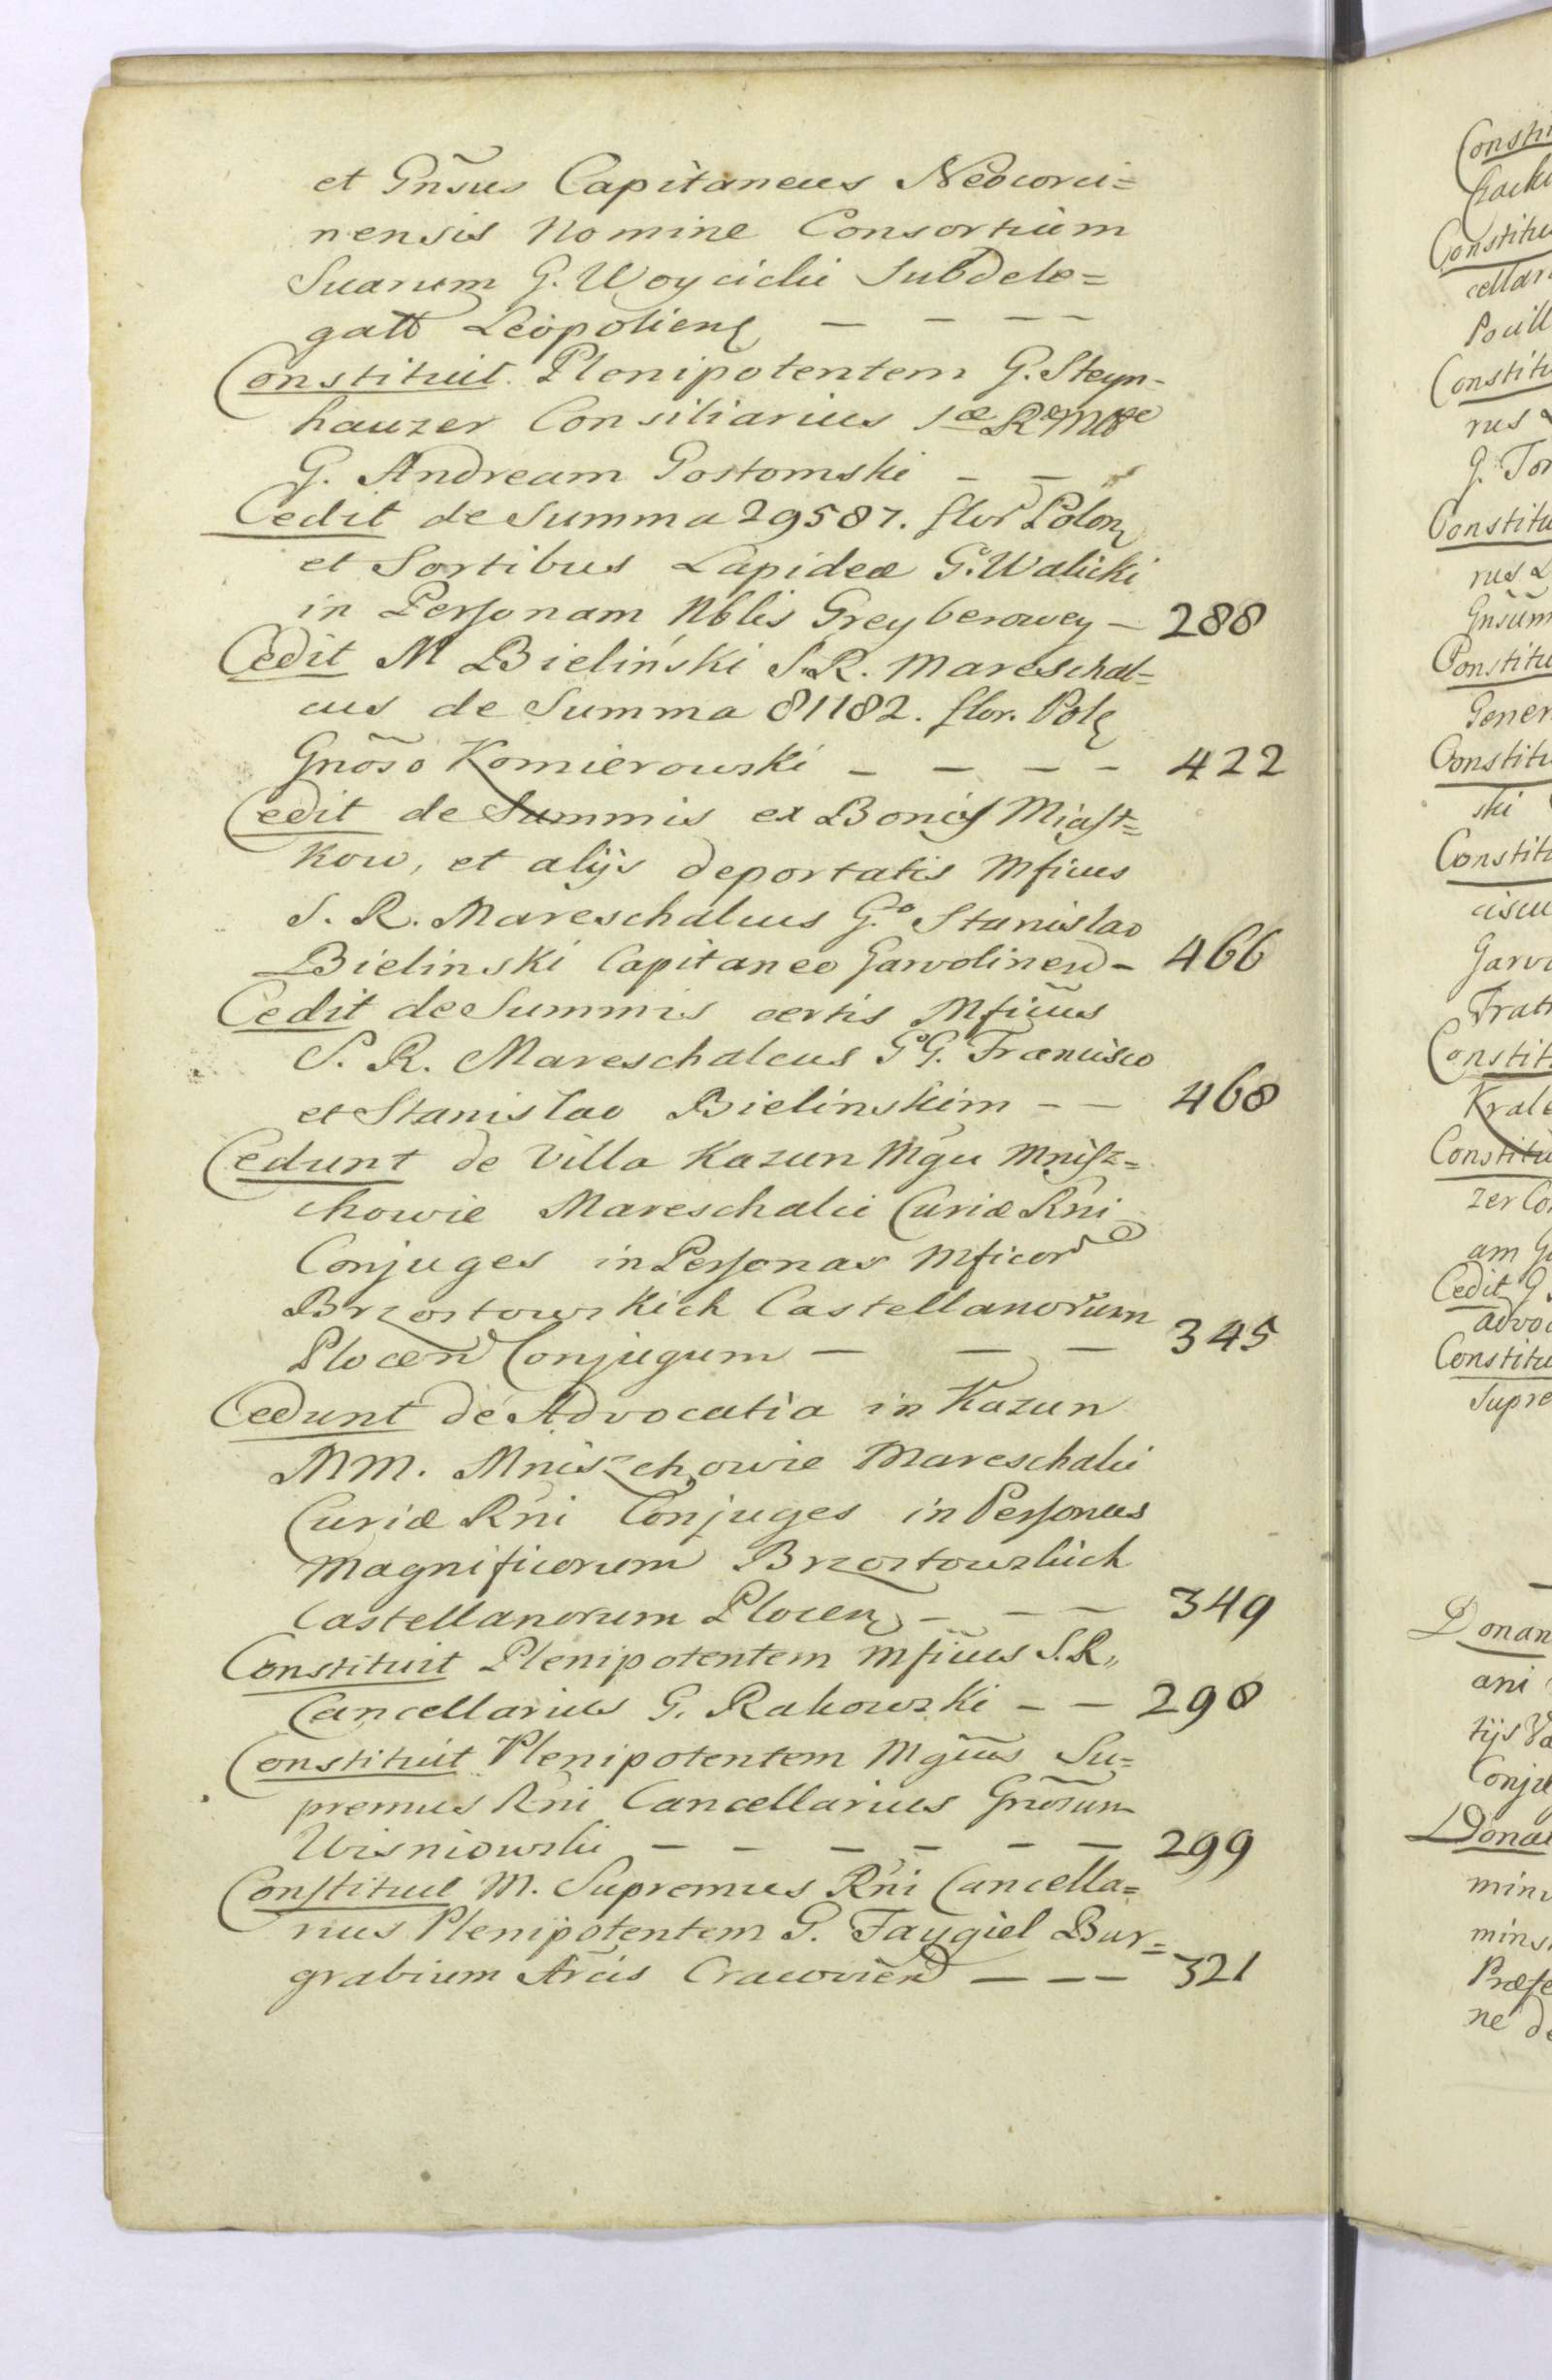 et Gnsus Capitaneus Neocorci=
nensis Nomine Consortium
Suarum G. Woycicki Subdele=
gatt Leopoliens
Constituit Plenipotentem G. Steyn-
hauzer Consiliarius
G. Andream Gostomski
Cedit de Summa 29587. flor Polon
et Sortibus Lapideæ G. Walicki
in Personam Nblis Greyberowey - 288
Cedit M Bieliński S.R. Mareschal=
cus de Summa 81182. flor. Pol
Gnoso Komierowski - - - - 422
Cedit de Summis ex Bonis Miast=
kow, et alijs deportatis Mficus
S. R. Mareschalcus G.o Stanislao
Bielinski Capitaneo Garvolinen - 466
Cedit de Summis certis Mficus
S. R. Mareschalcus G.o G. Francisco
et Stanislao Bielinskim - - 468
Cedunt de Villa Kazun Mgci Mnisz=
chowie Mareschalci Curiæ Rni
Conjuges in Personas Mficor
Brzostowskich Castellanorum
Plocen Conjugum - - - 345
Cedunt de Advocatia in Kazun
MM. Mniszchowie Mareschalci
Curiæ Rni Conjuges in Personas
Magnificorum Brzostowskich
Castellanorum Plocen - - - 349
Constituit Plenipotentem Mficus S.R.
Cancellarius G. Rakowski - - 298
Constituit Plenipotentem Mgcus Su=
premus Rni Cancellarius Gnosum
Wisniowski - - - - - - 299
Constituit M. Supremus Rni Cancella=
rius Plenipotentem G. Faygiel Bur=
grabium Arcis Cracovien - - - 321